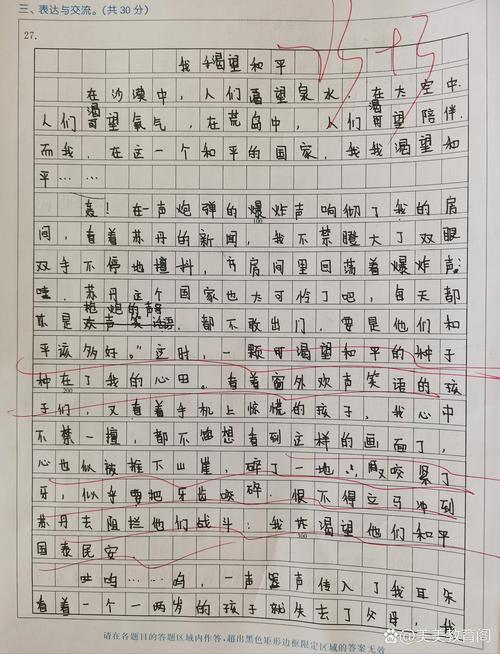 三、表达与交流。(共30分)
27.
我渴望和平
在沙漠中，人们渴望泉水，在太空中，
人们渴望氧气，在荒岛中，人们渴望陪伴，
而我，在这一个和平的国家，我渴望和
平……
轰！在一声炮弹的爆炸声响彻了我的房
间，看着苏丹的新闻，我不禁瞪大了双眼
双手不停地擅抖，房间里回荡着爆炸声：
哇，苏丹这个国家也太可怜了吧，每天都
是枪炮的声，都不敢出门，要是他们和
平该多好。”这时，一颗可渴望和平的种子
种在了我的心田。看着窗外欢声笑语的孩
子们，又看着手机上惊慌的孩子，我心中
不禁一擅，都不想看到这样的画面了，
心也似被推下山崖，碎了一地，咬紧了
牙，似乎要把牙齿咬碎，恨不得立马冲到
苏丹去阻拦他们战斗：我渴望他们和平
国泰民安。
吐呜……呜，一声器声传入了我耳朵
看着一个一两岁的孩子就失去了父母，我
请在各题目的答题区域内作答，超出黑色矩形边框限定区域的答案无效
美美教育阁